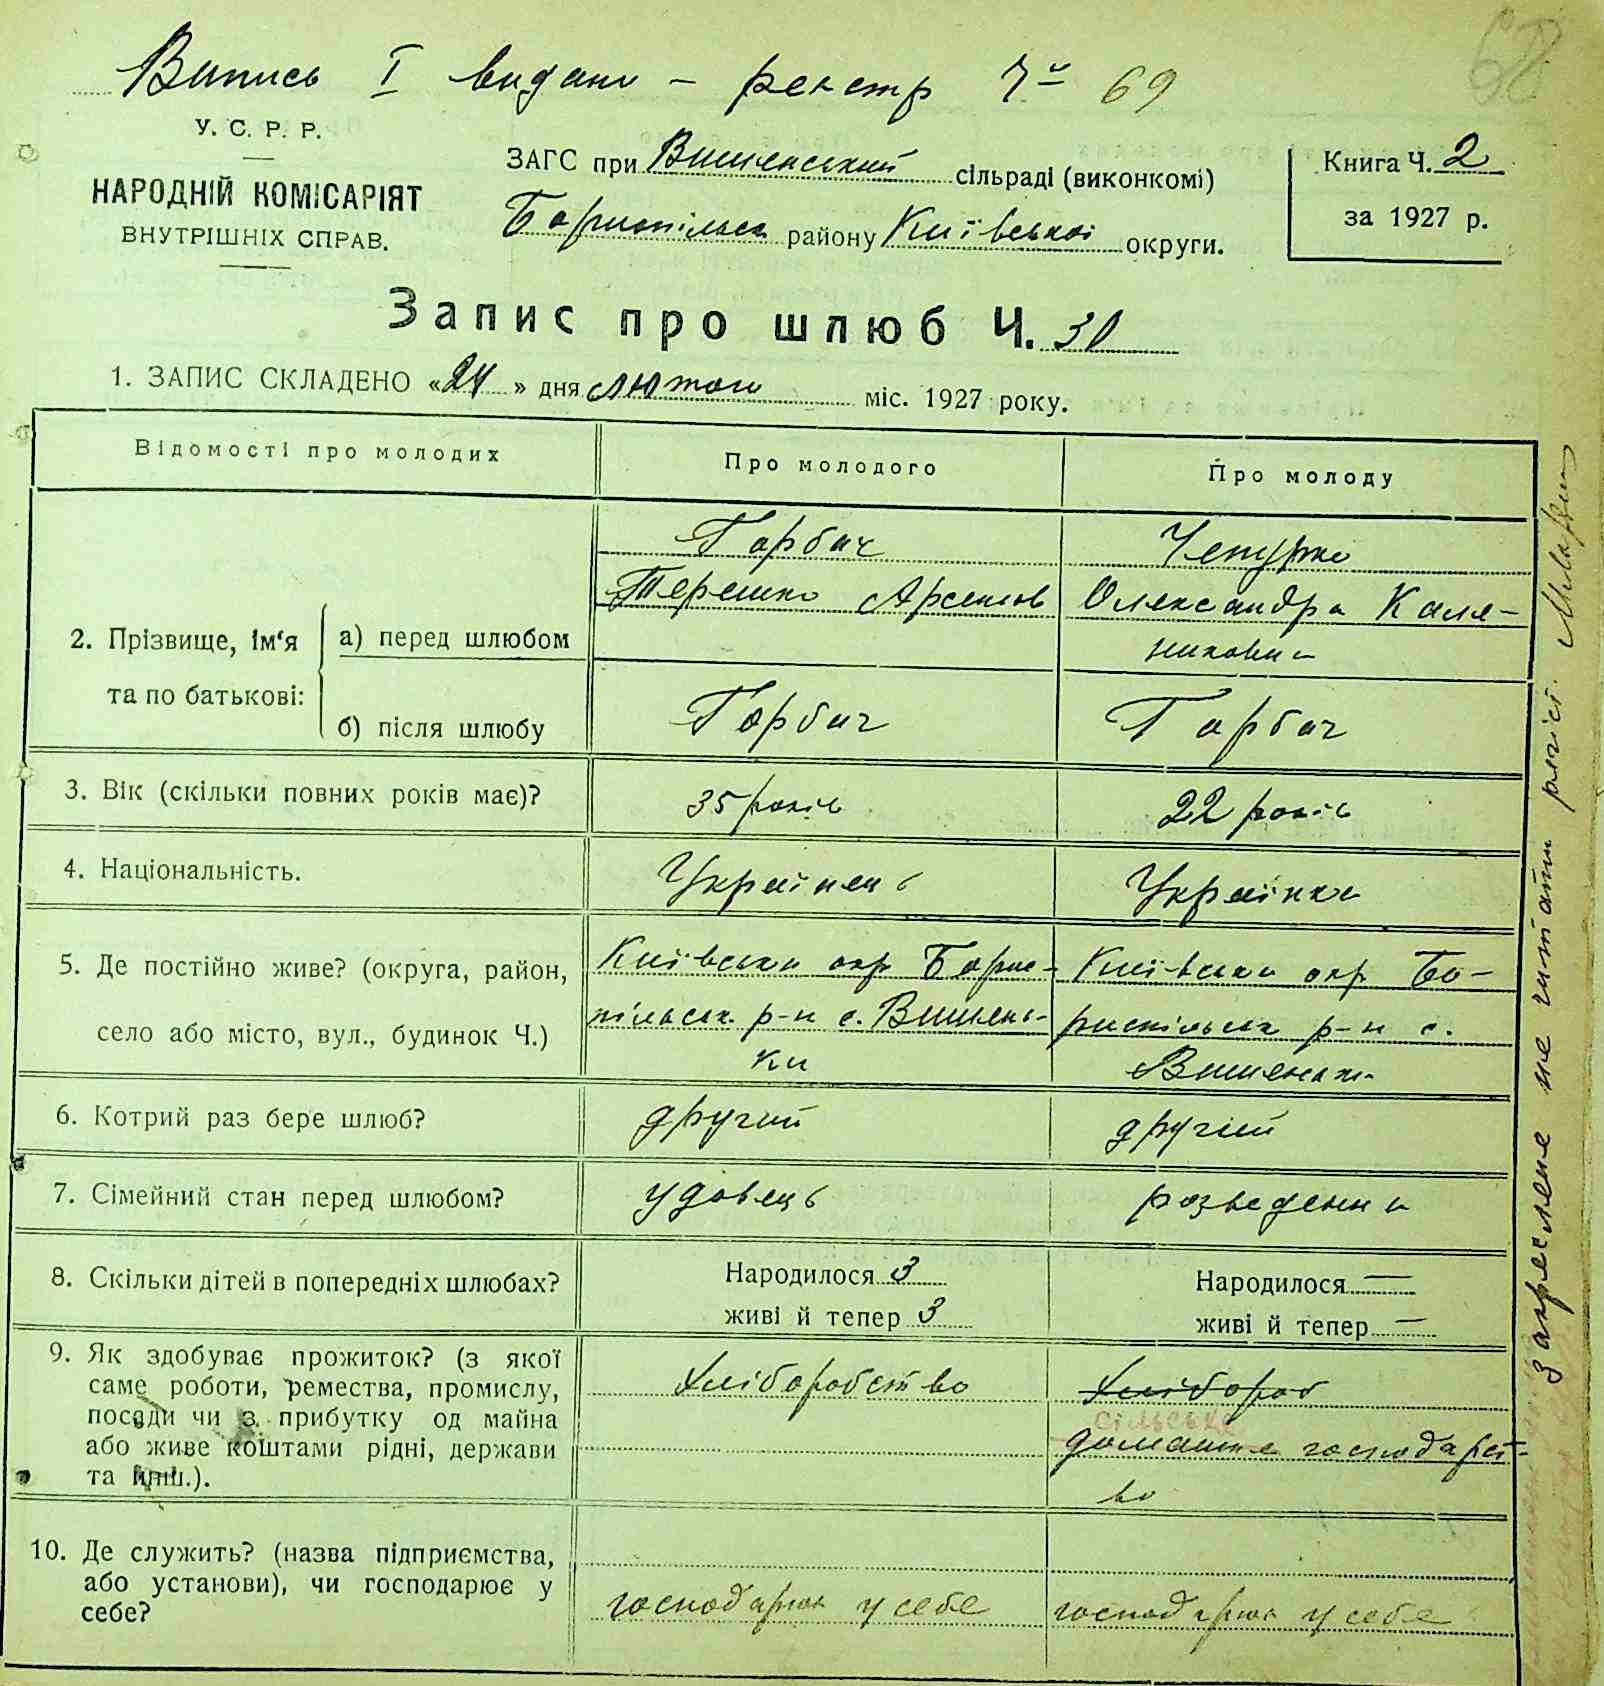 68
Випись I видано – реєстр Ч 69
У. С. Р. Р.
НАРОДНІЙ КОМІСАРІЯТ
ВНУТРІШНІХ СПРАВ.
ЗАГС при Вишенський сільраді (виконкомі)
Бориспільськ району Київської округи.
Книга Ч. 2
за 1927 р.
Запис про шлюб Ч. 30
1. ЗАПИС СКЛАДЕНО «24» дня лютого міс. 1927 року.
Відомості про молодих
Про молодого
Про молоду
2. Прізвище, ім'я та по батькові:
а) перед шлюбом
Горбач
Терешко Арсенов
Чепурко
Олександра Каля-
никовна
б) після шлюбу
Горбач
Горбач
3. Вік (скільки повних років має)?
35 років
22 років
4. Національність.
Українець
Українка
5. Де постійно живе? (округа, район,
село або місто, вул., будинок Ч.)
Київська окр Борис-
пільськ. р-н с. Вишень-
ки
Київська окр Бо-
риспільськ р-н с.
Вишеньки
6. Котрий раз бере шлюб?
другий
другий
7. Сімейний стан перед шлюбом?
удовець
розведенна
8. Скільки дітей в попередніх шлюбах?
Народилося 3
живі й тепер 3
Народилося —
живі й тепер —
9. Як здобуває прожиток? (з якої
саме роботи, ремества, промислу,
посади чи з прибутку од майна
або живе коштами рідні, держави
та инш.).
Хліборобство
Хлібороб
сільське
домашнє господарст-
во
10. Де служить? (назва підприємства,
або установи), чи господарює у
себе?
господарює у себе
господарює у себе
Закреслене не читати